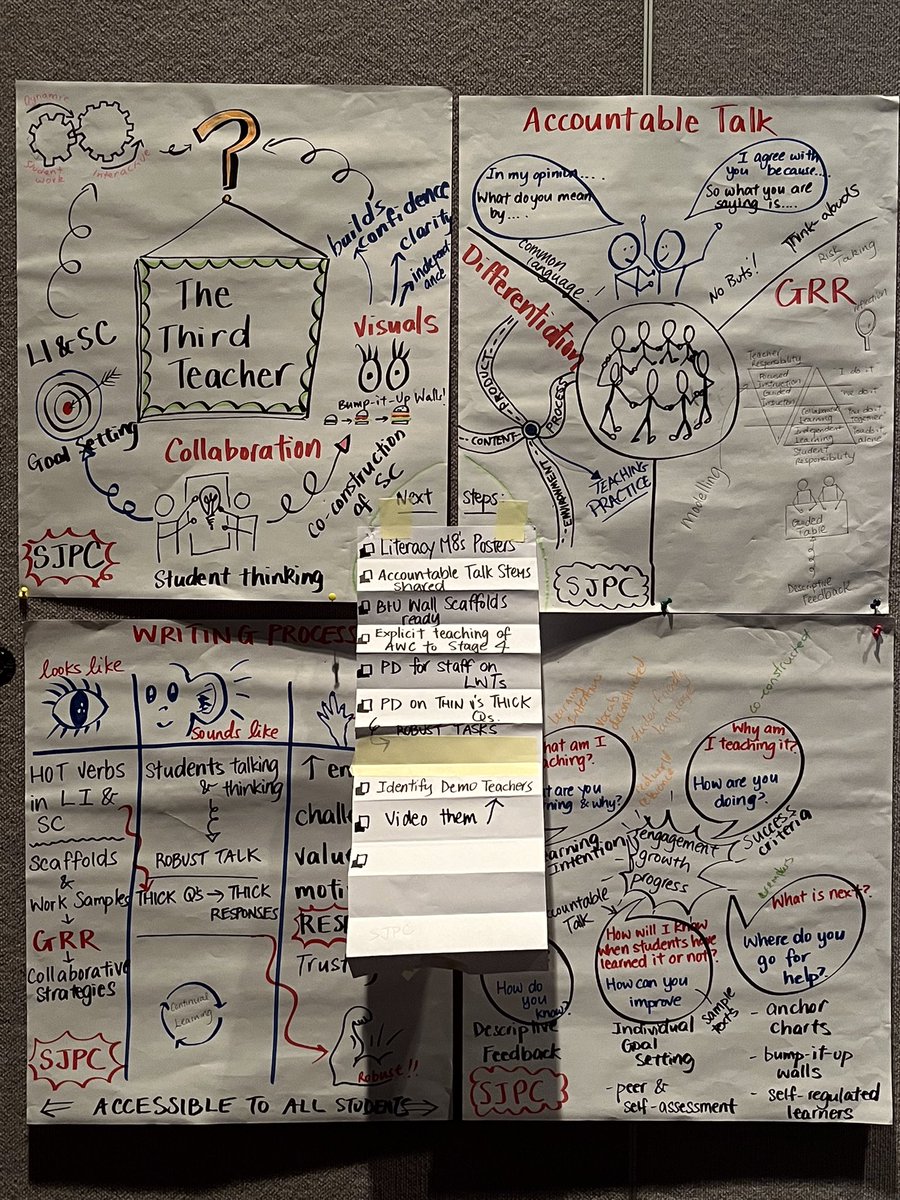 Dynamic
Student
work
Interactive
?
The
Third
Teacher
builds
confidence
clarity
independ-
ance
Visuals
Bump-it-Up Walls!
LI & SC
Goal setting
Collaboration
co-construction
of SC
Student thinking
SJPC
Accountable Talk
In my opinion.....
What do you mean
by....
I agree with
you because...
So what you are
saying is....
Common
language
No Buts!
Think-alouds
Risk Taking
Differentiation
GRR
reflection
PRODUCT
PROCESS
CONTENT
TEACHING
PRACTICE
Teacher
Responsibility
Focused
Instruction
Guided
Instruction
Collaborative
Learning
Independent
Learning
Student
Responsibility
I do it
We do it
alone
Modelling
Guided
Table
Descriptive
Feedback
SJPC
Next Steps:
Literacy M8's Posters
Accountable Talk Stems
shared
BIU Wall Scaffolds
ready
Explicit teaching of
AWC to Stage 4
PD for staff on
LWTs
PD on THIN v's THICK
Qs.
& ROBUST TASKS
Identify Demo Teachers
Video them
SJPC
WRITING PROCESS
looks like
sounds like
HOT verbs
in LI &
SC
Scaffolds
&
Work Samples
GRR
Collaborative
strategies
SJPC
Students talking
& thinking
ROBUST TALK
THICK Q's → THICK
RESPONSES
Continual
Learning
↑ en
challe
value
moti
RESP
Trust
Robust!!
ACCESSIBLE TO ALL STUDENTS
Learning
Intentions
co-constructed
hat am I
ching?
t are you
ning & why?
Why am
I teaching it?
How are you
doing?
earning
Intention
engagement
growth
progress
Success
criteria
countable
Talk
How do you
know?
Descriptive
Feedback
SJPC
How will I know
when students have
learned it or not?
How can you
improve
sample
texts
Individual
Goal
Setting
- peer &
self-assessment
What is next?
Where do you
go for
help?
- anchor
charts
- bump-it-up
walls
- self-regulated
learners